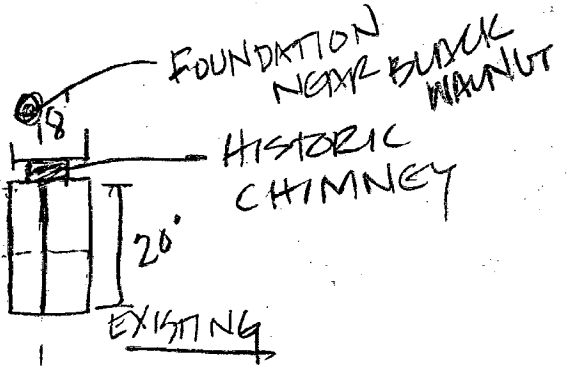 FOUNDATION
NEAR BLACK
WALNUT
18'
HISTORIC
CHIMNEY
20'
EXISTING